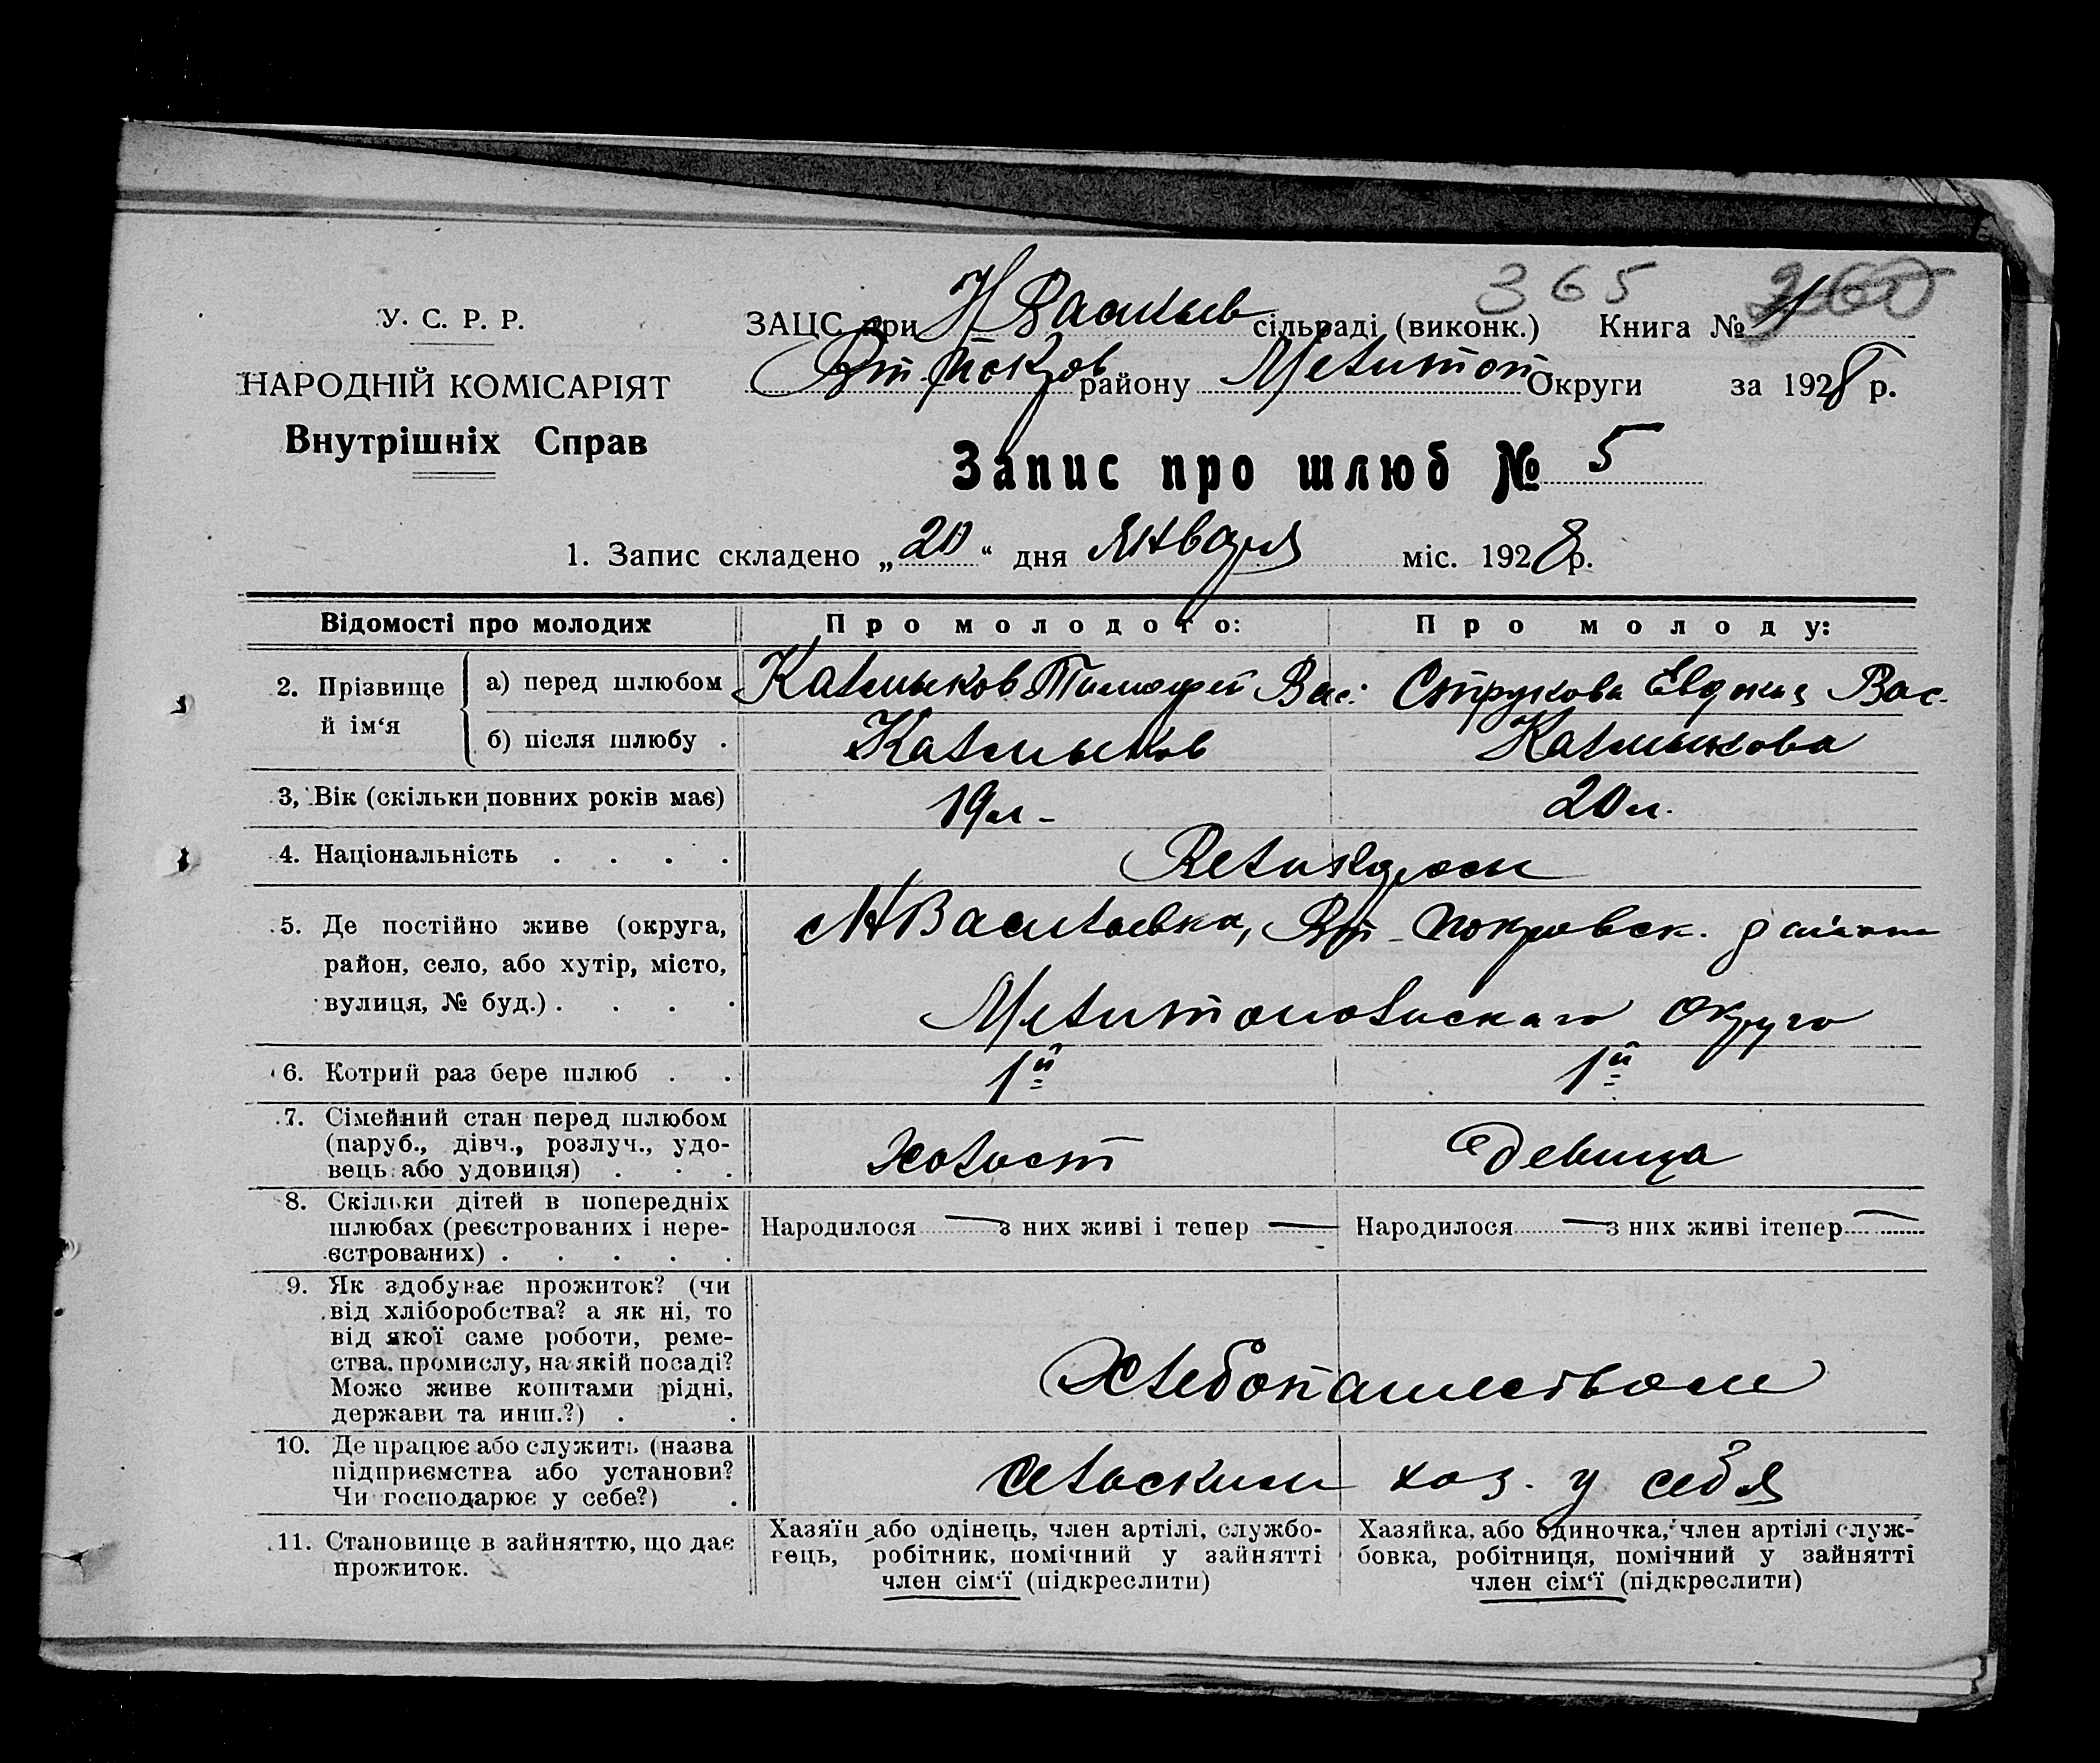 365 260
У. С. Р. Р.
НАРОДНІЙ КОМІСАРІЯТ
Внутрішніх Справ
ЗАЦС при Н Васильев сільраді (виконк.) Книга № 1
Вт. Покров району Мелитоп Округи за 1928 р.
Запис про шлюб № 5
1. Запис складено „20“ дня Января міс. 1928 р.
Відомості про молодих Про молодого: Про молоду:
2. Прізвище й ім‘я а) перед шлюбом Калмыков Тимофей Вас. Струкова Евдокия Вас.
б) після шлюбу . Калмыков Калмыкова
3, Вік (скільки повних років має) 19 л- 20 л.
4. Національність . . . . Великоросы
5. Де постійно живе (округа,
район, село, або хутір, місто,
вулиця, № буд.) . . . .
с НВасильевка, Вт-Покровск. район
Мелитопольскаго округа
6. Котрий раз бере шлюб . . 1й 1й
7. Сімейний стан перед шлюбом
(паруб., дівч., розлуч., удо-
вець або удовиця) . . .
холост девица
8. Скільки дітей в попередніх
шлюбах (реєстрованих і нере-
єстрованих) . . . . .
Народилося — з них живі і тепер — Народилося — з них живі ітепер —
9. Як здобуває прожиток? (чи
від хліборобства? а як ні, то
від якої саме роботи, реме-
ства, промислу, на якій посаді?
Може живе коштами рідні,
держави та инш.?) . .
Хлебопашеством
10. Де працює або служить (назва
підприємства або установи?
Чи господарює у себе?) .
Сельским хоз. у себя
11. Становище в зайняттю, що дає
прожиток.
Хазяїн або одінець, член артілі, службо-
вець, робітник, помічний у зайнятті
член сім‘ї (підкреслити)
Хазяйка, або одиночка, член артілі служ-
бовка, робітниця, помічний у зайнятті
член сім‘ї (підкреслити)